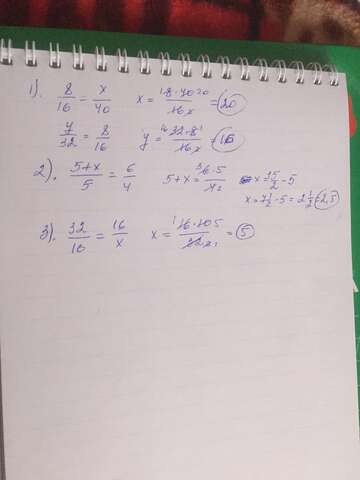 1). 8/16 = x/40 x = 8·40/16 = 20
y/32 = 8/16 y = 32·8/16 = 16
2). 5+x/5 = 6/4 5+x = 6·5/4 x = 15/2 - 5
x = 7 1/2 - 5 = 2 1/2 = 2,5
3). 32/10 = 16/x x = 16·10/32 = 5